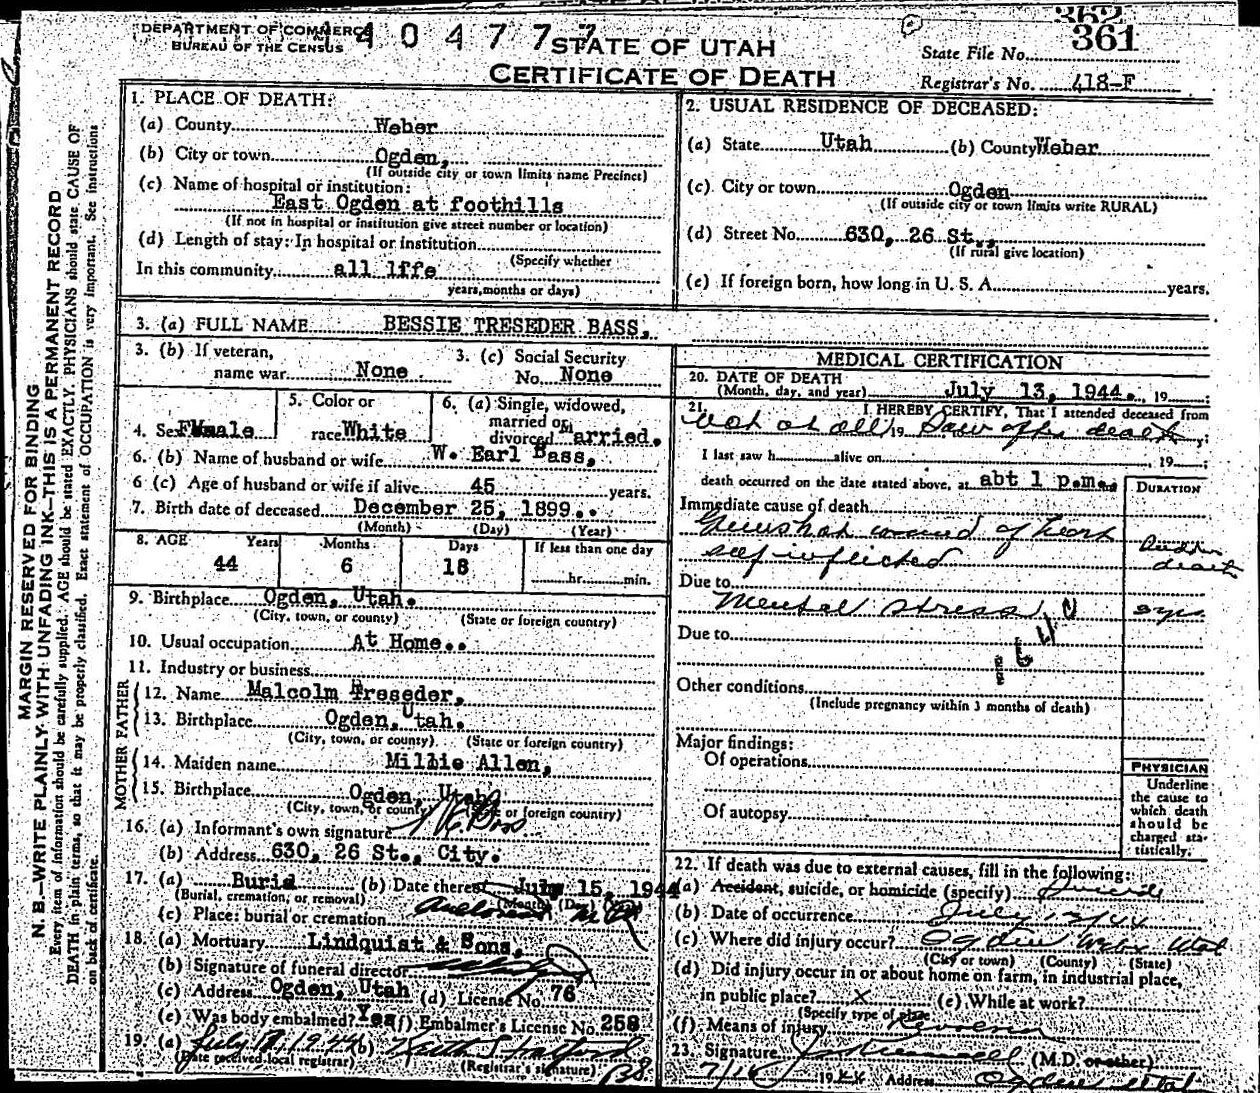 DEPARTMENT OF COMMERCE
BUREAU OF THE CENSUS
140477
STATE OF UTAH
CERTIFICATE OF DEATH
362
State File No. 361
Registrar's No. 418-F
MARGIN RESERVED FOR BINDING
N. B.—WRITE PLAINLY WITH UNFADING INK—THIS IS A PERMANENT RECORD
Every item of information should be carefully supplied. AGE should be stated EXACTLY. PHYSICIANS should state CAUSE OF
DEATH in plain terms, so that it may be properly classified. Exact statement of OCCUPATION is very important. See instructions
on back of certificate.
1. PLACE OF DEATH:
(a) County Weber
(b) City or town Ogden,
(If outside city or town limits name Precinct)
(c) Name of hospital or institution:
East Ogden at foothills
(If not in hospital or institution give street number or location)
(d) Length of stay: In hospital or institution
(Specify whether
In this community all lffe
years, months or days)
2. USUAL RESIDENCE OF DECEASED:
(a) State Utah (b) County Weber
(c) City or town Ogden
(If outside city or town limits write RURAL)
(d) Street No. 630, 26 St.,
(If rural give location)
(e) If foreign born, how long in U. S. A. years.
3. (a) FULL NAME BESSIE TRESEDER BASS,
3. (b) If veteran,
name war None
3. (c) Social Security
No. None
4. Sex Female
5. Color or
race White
6. (a) Single, widowed,
married or
divorced Married.
6. (b) Name of husband or wife W. Earl Bass,
6 (c) Age of husband or wife if alive 45 years.
7. Birth date of deceased December 25, 1899.
(Month) (Day) (Year)
8. AGE Years Months Days If less than one day
44 6 18 hr. min.
9. Birthplace Ogden, Utah.
(City, town, or county) (State or foreign country)
10. Usual occupation At Home..
11. Industry or business
FATHER
12. Name Malcolm Treseder,
13. Birthplace Ogden, Utah.
(City, town, or county) (State or foreign country)
MOTHER
14. Maiden name Millie Allen,
15. Birthplace Ogden, Utah
(City, town, or county) (State or foreign country)
16. (a) Informant's own signature
(b) Address 630, 26 St., City.
17. (a) Burial (b) Date thereof July 15, 1944
(Burial, cremation, or removal) (Month) (Day) (Year)
(c) Place: burial or cremation
18. (a) Mortuary Lindquist & Sons,
(b) Signature of funeral director
(c) Address Ogden, Utah (d) License No. 76
(e) Was body embalmed? Yes (f) Embalmer's License No. 258
19. (a) July 1944 (b) Keith S
(Date received local registrar) (Registrar's signature)
MEDICAL CERTIFICATION
20. DATE OF DEATH
(Month, day, and year) July 13, 1944., 19 ;
21. I HEREBY CERTIFY, That I attended deceased from
not at all, 19 Saw after death ;
I last saw h alive on , 19 ;
death occurred on the date stated above, at abt 1 p.m.
DURATION
Immediate cause of death
Gunshot wound of heart
self inflicted
Sudden
death
Due to
Mental stress
2 yrs
Due to
Other conditions
(Include pregnancy within 3 months of death)
Major findings:
Of operations
Of autopsy
PHYSICIAN
Underline
the cause to
which death
should be
charged sta-
tistically.
22. If death was due to external causes, fill in the following:
(a) Accident, suicide, or homicide (specify) Suicide
(b) Date of occurrence July 13/44
(c) Where did injury occur? Ogden Weber Utah
(City or town) (County) (State)
(d) Did injury occur in or about home on farm, in industrial place,
in public place? X (e) While at work?
(Specify type of place
(f) Means of injury Revolver
23. Signature (M.D. or other)
19 44 Address Ogden Utah